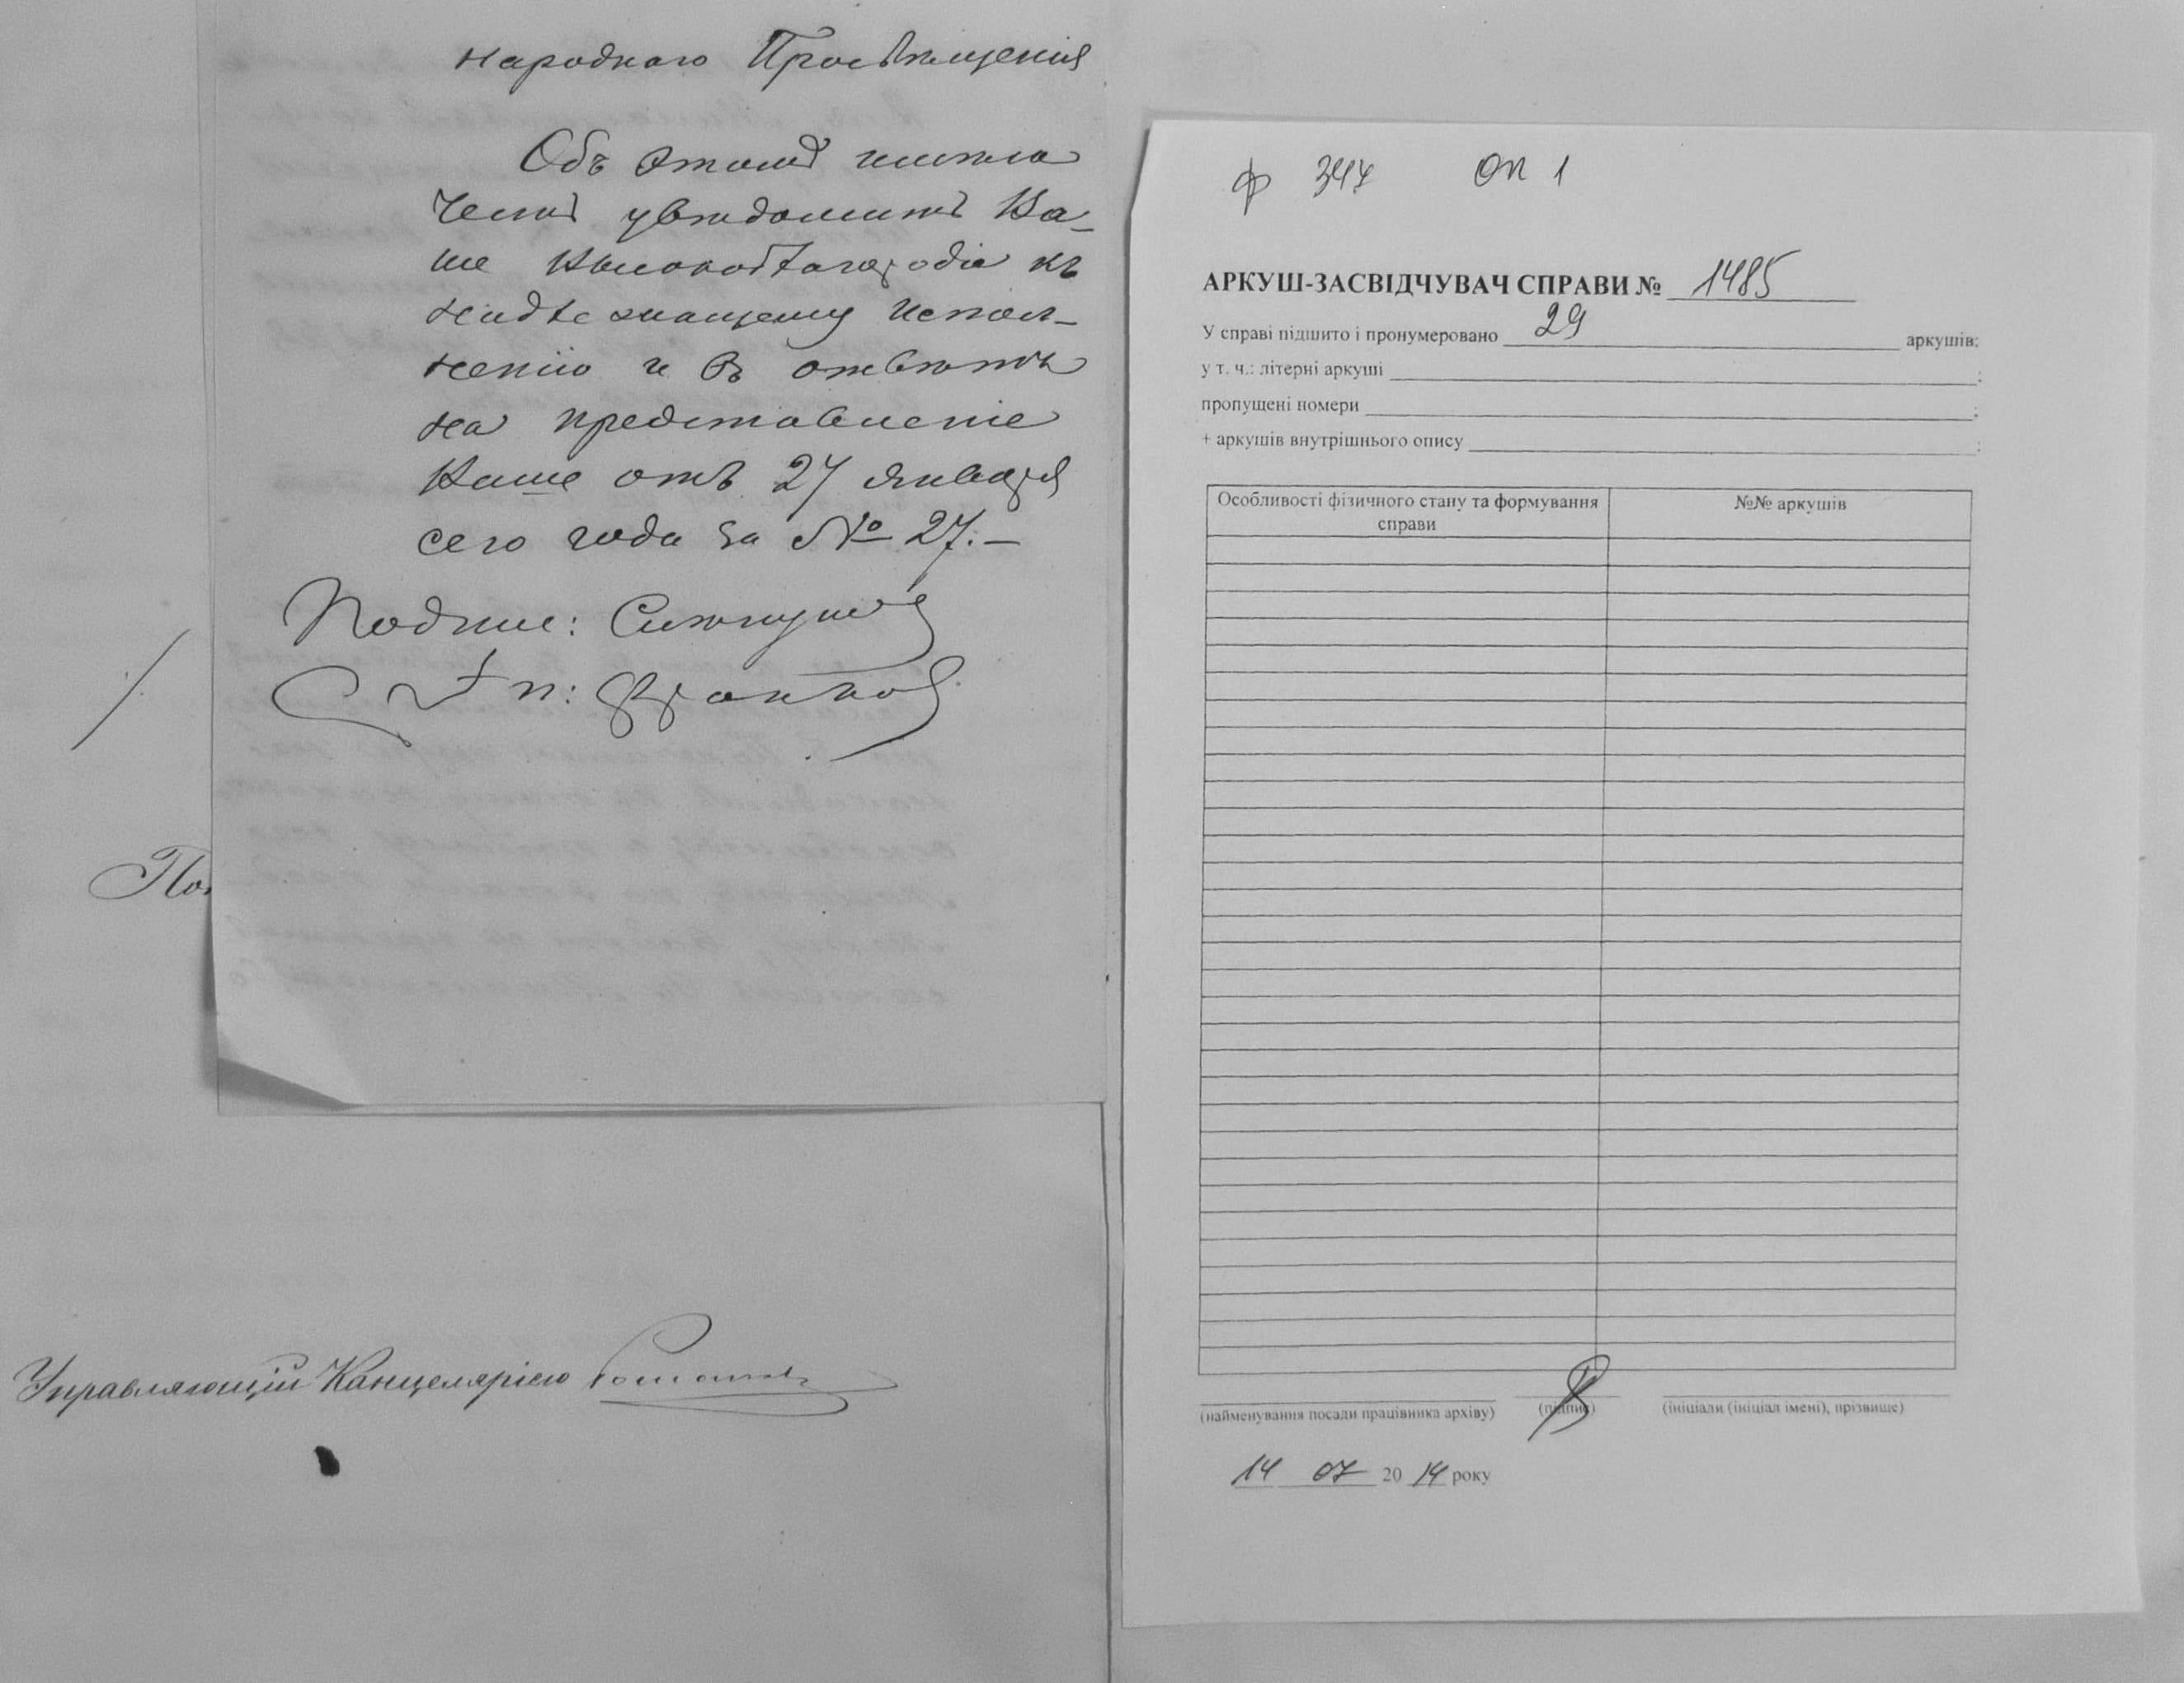 народнаго Просвѣщенія
Объ этомъ имѣю
честь увѣдомить Ва-
ше Высокоблагородіе къ
надлежащему испол-
ненію и въ отвѣтъ
на представленіе
Ваше отъ 27 января
сего года за № 27.—
Подпис:
Скрѣп:
По
Управляющій Канцеляріею
ф 347 оп 1
АРКУШ-ЗАСВІДЧУВАЧ СПРАВИ № 1485
У справі підшито і пронумеровано 29 аркушів;
у т. ч.: літерні аркуші ;
пропущені номери ;
+ аркушів внутрішнього опису ;
Особливості фізичного стану та формування справи №№ аркушів
(найменування посади працівника архіву) (підпис) (ініціали (ініціал імені), прізвище)
14 07 2014 року